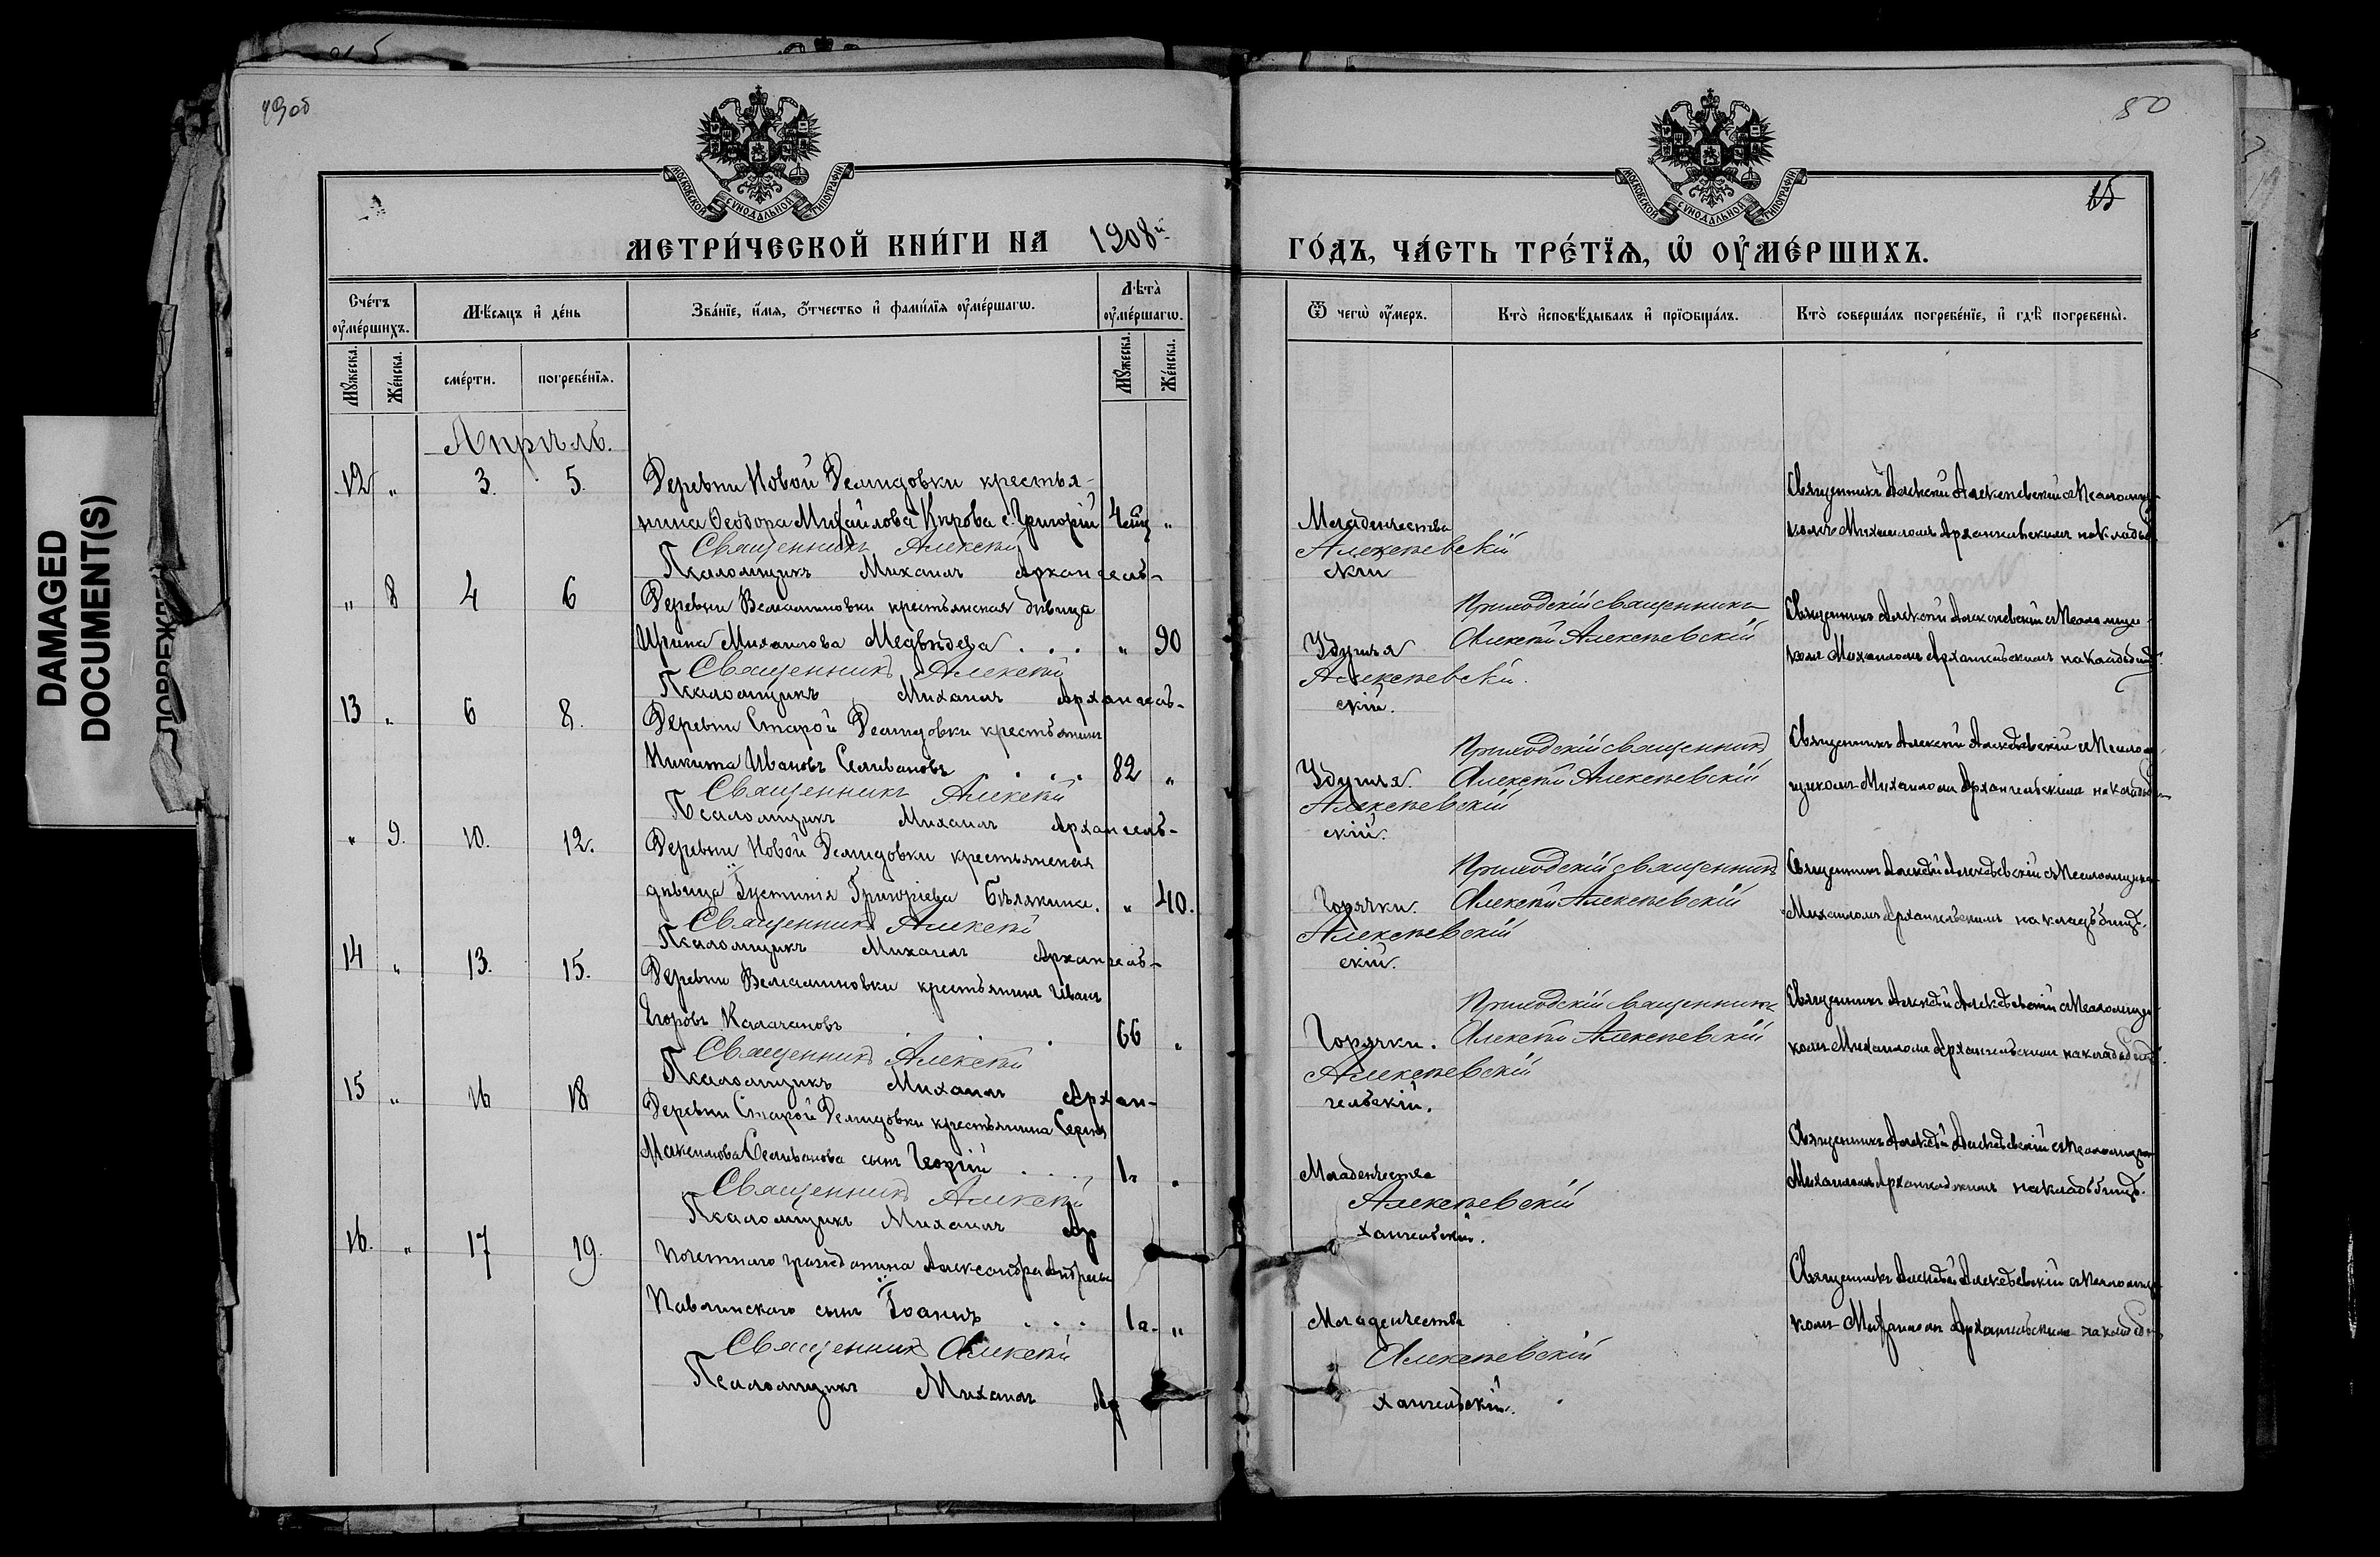 DAMAGED
DOCUMENT(S)
1908
50
15
МОСКОВСКОЙ СУНОДАЛЬНОЙ ТИПОГРАФІИ
МОСКОВСКОЙ СУНОДАЛЬНОЙ ТИПОГРАФІИ
МЕТРИ́ЧЕСКОЙ КНИ́ГИ НА 1908й
ГО́ДЪ, ЧА́СТЬ ТРЕ́ТЇѦ, Ѽ ОУ҆МЕ́РШИХЪ.
Сче́тъ оу҆ме́ршихъ.
Мѣ́сяцъ и҆ де́нь
Зва́нїе, и҆́мя, ѻ҆́тчество и҆ фами́лїя оу҆ме́ршагѡ.
Лѣта̀ оу҆ме́ршагѡ.
Ѿ чегѡ̀ оу҆́меръ.
Кто̀ и҆сповѣ́дывалъ и҆ прїѻбща́лъ.
Кто̀ соверша́лъ погребе́нїе, и҆ гдѣ̀ погребены̀.
Мꙋ́жеска. Же́нска. сме́рти. погребе́нїя. Мꙋ́жеска. Же́нска.
Апрѣль.
12 " 3. 5. Деревни Новой Демидовки крестья-
нина Ѳеодора Михайлова Кирова с. Григорій "
Младенчества
Священникъ Алексѣй Алексѣевскій с Псаломщи-
комъ Михаиломъ Архангельскимъ на кладб
Священникъ Алексѣй Алексѣевскій
Псаломщикъ Михаилъ Архангель-
скій
" 8 4 6 Деревни Вельяминовки крестьянская дѣвица
Ирина Михаилова Медвѣдева . . . " 90
Удушья
Приходскій священникъ
Алексѣй Алексѣевскій
Священникъ Алексѣй Алексѣевскій с Псаломщи-
комъ Михаиломъ Архангельскимъ на кладбищѣ.
Священникъ Алексѣй Алексѣевскій.
Псаломщикъ Михаилъ Архангель-
скій.
13 " 6 8. Деревни Старой Демидовки крестьянинъ
Никита Ивановъ Селивановъ . . . . 82 "
Удушья.
Приходскій священникъ
Алексѣй Алексѣевскій
Священникъ Алексѣй Алексѣевскій с Псалом-
щикомъ Михаиломъ Архангельскимъ на кладб
Священникъ Алексѣй Алексѣевскій
Псаломщикъ Михаилъ Архангель-
скій.
" 9. 10. 12. Деревни Новой Демидовки крестьянская
дѣвица Іустинія Григоріева Бѣлякина. " 40.
Горячки.
Приходскій священникъ
Алексѣй Алексѣевскій
Священникъ Алексѣй Алексѣевскій с Псаломщикомъ
Михаиломъ Архангельскимъ на кладбищѣ.
Священникъ Алексѣй Алексѣевскій
Псаломщикъ Михаилъ Архангель-
скій.
14 " 13. 15. Деревни Вельяминовки крестьянинъ Иванъ
Егоровъ Калачановъ . . . 66 "
Горячки.
Приходскій священникъ
Алексѣй Алексѣевскій
Священникъ Алексѣй Алексѣевскій с Псаломщи-
комъ Михаиломъ Архангельскимъ на кладбищѣ.
Священникъ Алексѣй Алексѣевскій
Псаломщикъ Михаилъ Архан-
гельскій.
15 " 16 18 Деревни Старой Демидовки крестьянина Сергія
Максимова Селиванова сынъ Георгій . . . 1г "
Младенчества
Священникъ Алексѣй Алексѣевскій с Псаломщикомъ
Михаиломъ Архангельскимъ на кладбищѣ.
Священникъ Алексѣй Алексѣевскій
Псаломщикъ Михаилъ Ар
хангельскій.
16. " 17 19. Почетнаго гражданина Александра Андреева
Павлинскаго сынъ Іоаннъ . . . "
Младенчества
Священникъ Алексѣй Алексѣевскій с Псаломщи-
комъ Михаиломъ Архангельскимъ на кладб
Священникъ Алексѣй Алексѣевскій
Псаломщикъ Михаилъ Ар
хангельскій.